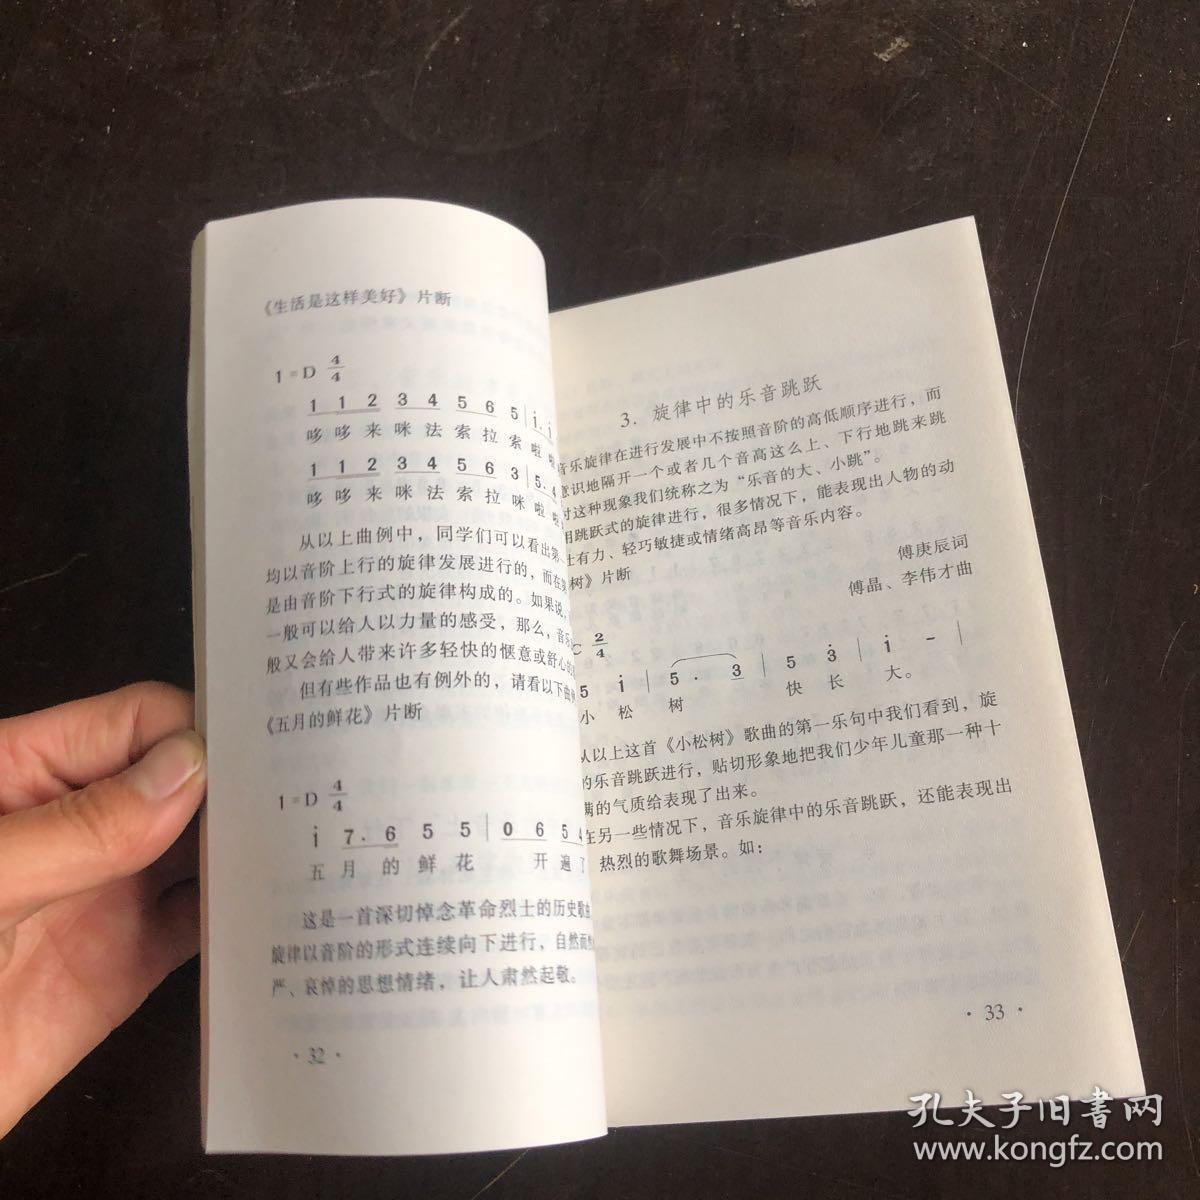 《生活是这样美好》片断
1=D 4/4
1 1 2 3 4 5 6 5 | i. i
哆 哆 来 咪 法 索 拉 索 啦 啦
1 1 2 3 4 5 6 3 | 5. 4
哆 哆 来 咪 法 索 拉 咪 啦 啦
从以上曲例中，同学们可以看出第
均以音阶上行的旋律发展进行的，而在
是由音阶下行式的旋律构成的。如果说，
一般可以给人以力量的感受，那么，音乐
般又会给人带来许多轻快的惬意或舒心的
但有些作品也有例外的，请看以下曲
《五月的鲜花》片断
1=D 4/4
i 7. 6 5 5 | 0 6 5 4
五 月 的 鲜 花 开 遍 了
这是一首深切悼念革命烈士的历史歌曲
旋律以音阶的形式连续向下进行，自然而
严、哀悼的思想情绪，让人肃然起敬。
· 32 ·
3. 旋律中的乐音跳跃
音乐旋律在进行发展中不按照音阶的高低顺序进行，而
意识地隔开一个或者几个音高这么上、下行地跳来跳
对这种现象我们统称之为“乐音的大、小跳”。
用跳跃式的旋律进行，很多情况下，能表现出人物的动
壮有力、轻巧敏捷或情绪高昂等音乐内容。
树》片断
傅庚辰词
傅晶、李伟才曲
C 2/4
5 i | 5. 3 | 5 3̇ | i - |
小 松 树 快 长 大。
从以上这首《小松树》歌曲的第一乐句中我们看到，旋
的乐音跳跃进行，贴切形象地把我们少年儿童那一种十
满的气质给表现了出来。
在另一些情况下，音乐旋律中的乐音跳跃，还能表现出
热烈的歌舞场景。如：
· 33 ·
孔夫子旧书网
www.kongfz.com